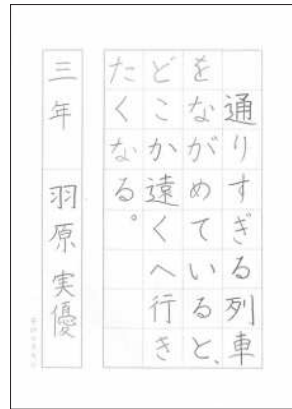 通りすぎる列車
をながめていると、
どこか遠くへ行き
たくなる。
三年 羽原実優